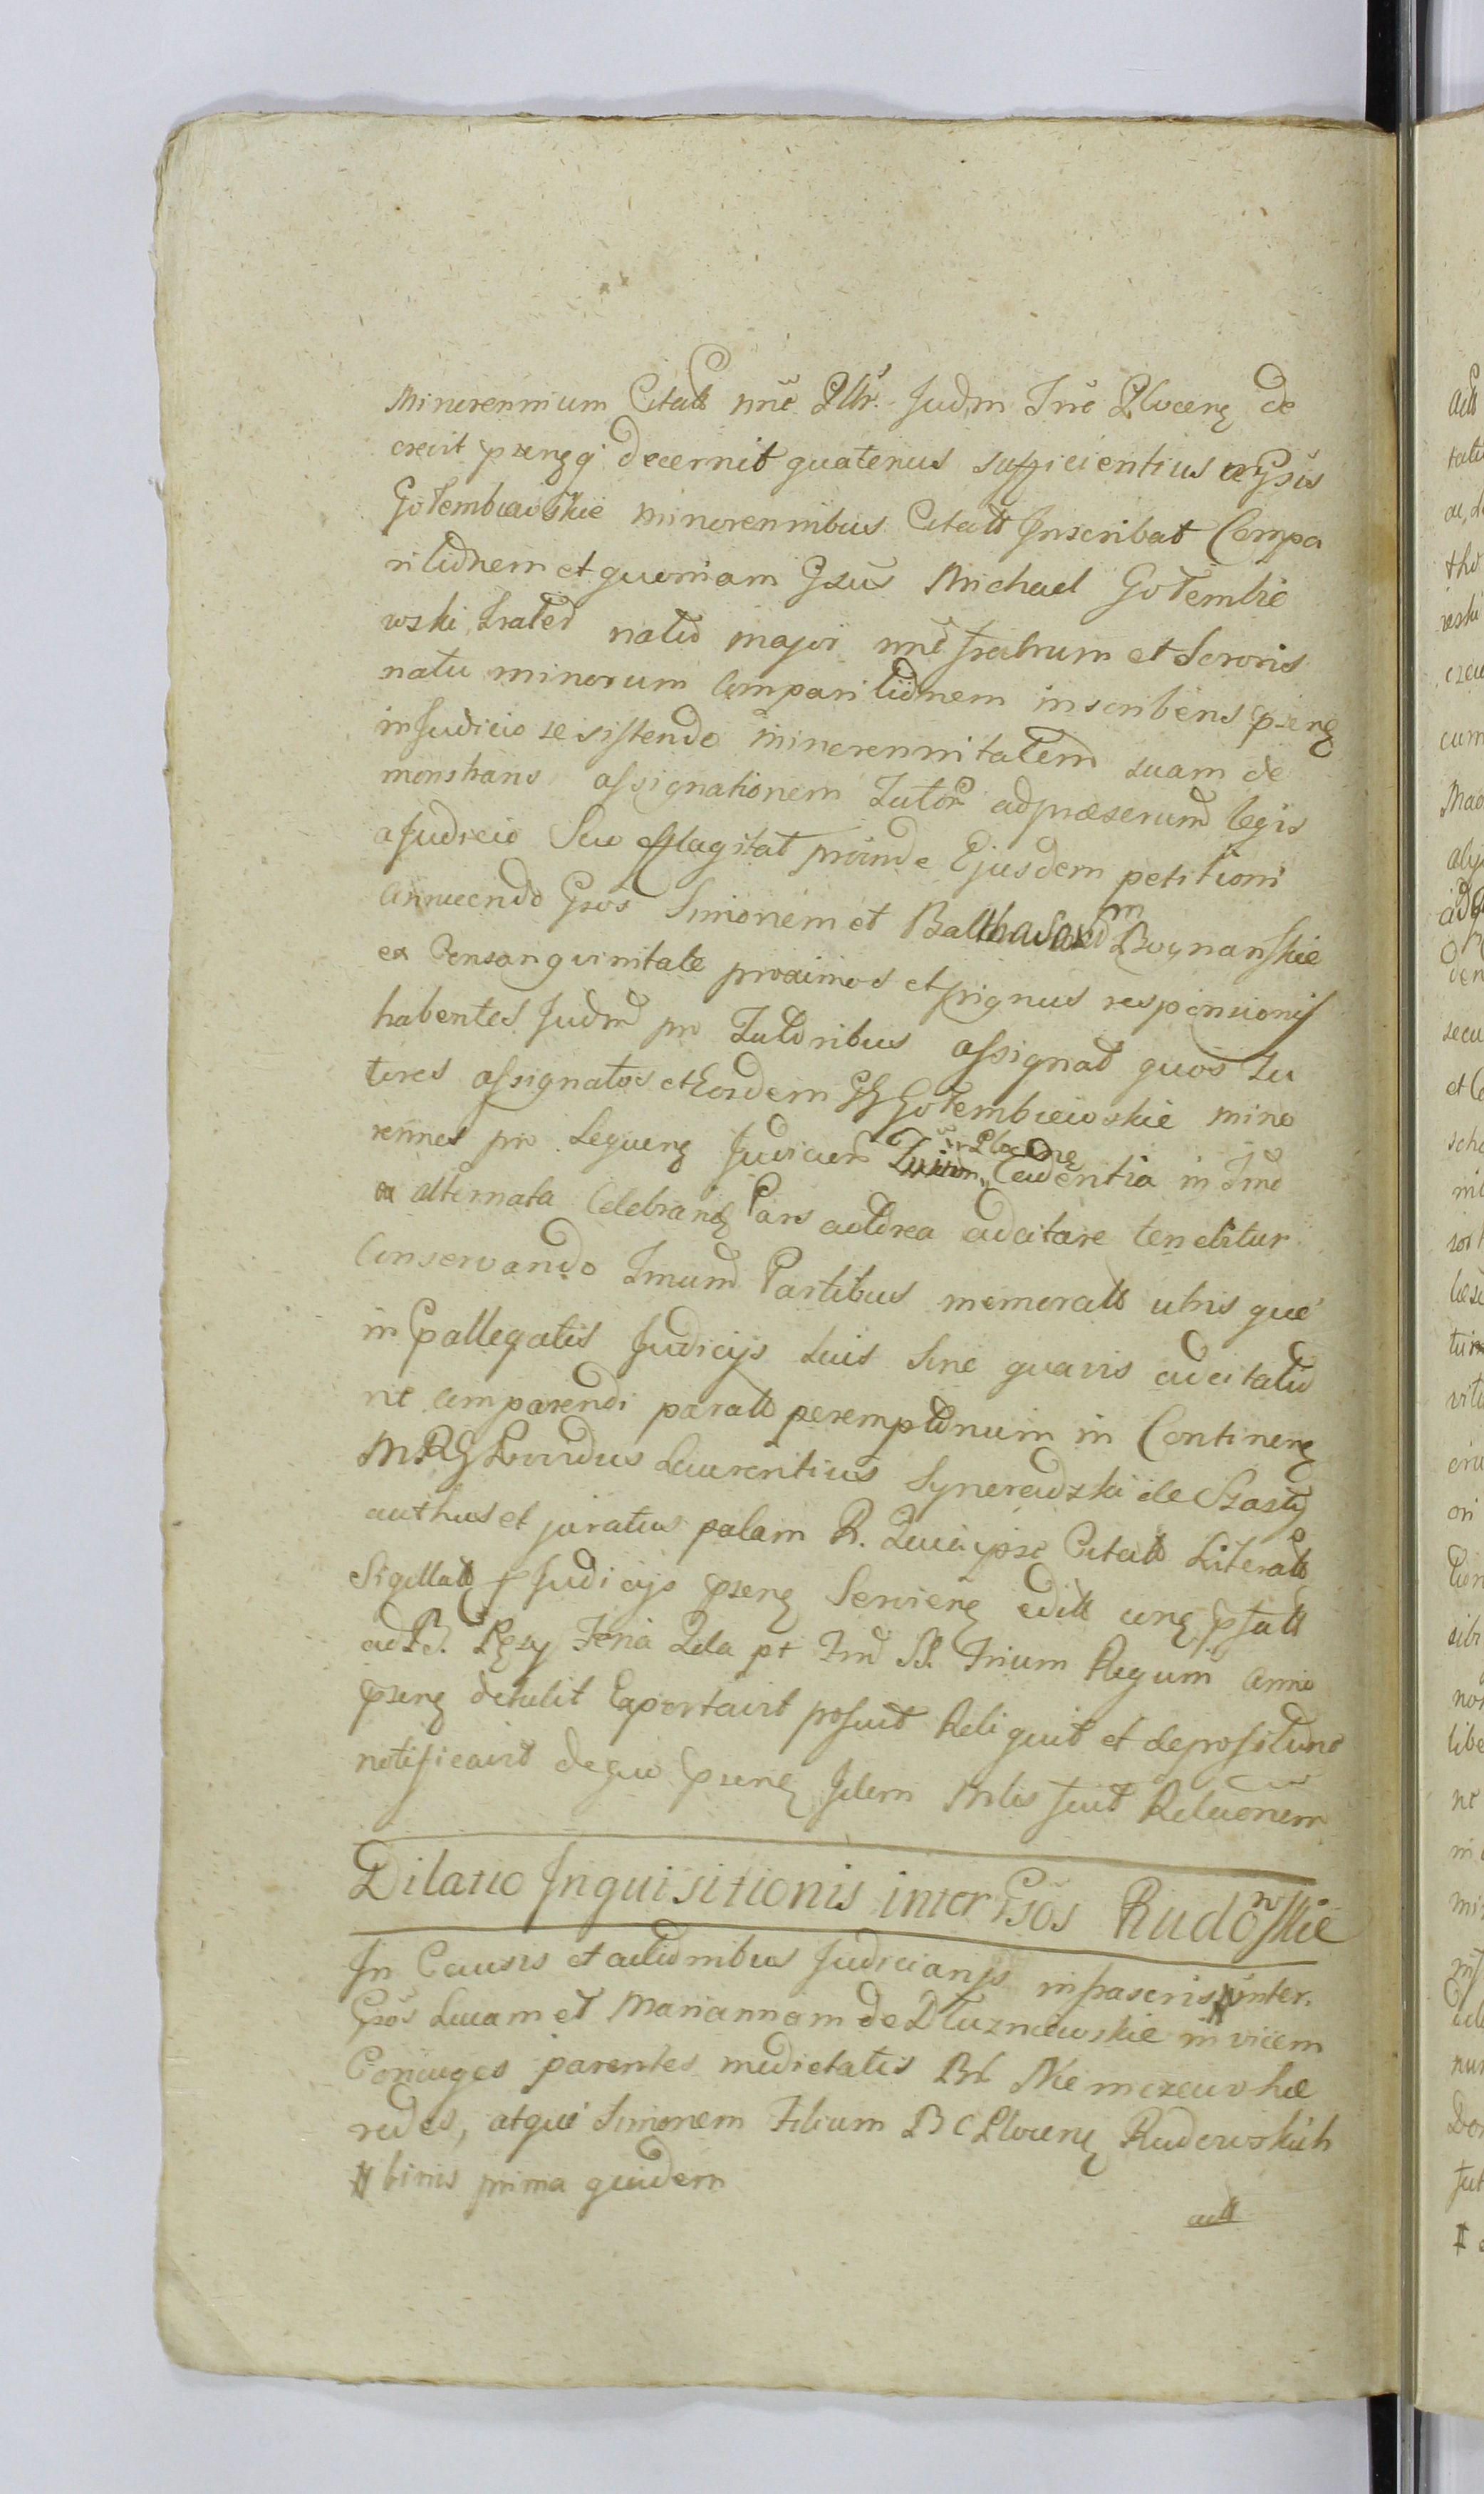 Minorennium Citatt nne Pltr. Judm Trre Plocen de
crevit pzenq decernit quatenus sufficientius Gsis
Gołembiewskie minorennibus Citatt Inscribat Compa
ritionem et quoniam Gsus Michael Gołembie
wski frater natu major nne fratrum et Sororis
natu minorum Comparitionem inscribens pzen
in Judicio se sistendo minorennitatem suam de
monstrans assignationem Tutor ad praescrum legis
a Judicio Suo efflagitat proinde Ejusdem petitioni
annuendo Gsos Simonem et Balthasarem Boynanskie
ex Consanguinitate proximos et pignus responsionis
habentes Judm pro Tutoribus assignat quos Tu
tores assignatos et Eosdem GG Gołembiewskie mino
rennes pro Sequen Judicium in Plocen Cadentia in Trno
ex alternata Celebran Pars actorea adcitare tenebitur
Conservando Trnum Partibus memoratt utris que
in pallegatis Judicijs suis Sine quavis adcitatio
ne comparendi paratt peremptorium in Continen
MRG Providus Laurentius Synoradzki de Szasty
authus et juratus palam R. Quia ipse Citatt Literatt
Sigillatt p Judicijs pzen Servien editt
ad B. Feria 2da pt SS. Trium Regum Anno
pzen detulit Exportavit posuit Reliquit et depositum
notificavit de quo pzen Idem Mlis fecit Relaonem
Dilatio Inquisitionis inter Gsos Rudowskie
In Causis et actionibus Judiciarijs infrascris # inter
Gsos Lucam et Mariannam de Dłuzniewskie invicem
Coniuges parentes medietatis Bn Niemczewo hæ
redes, atque Simonem Filium B C Plocen Rudowskich
# binis prima quidem
actt